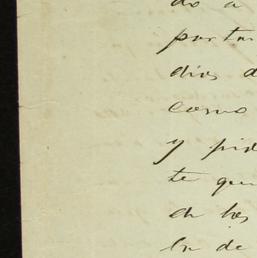 do a
por tan
dias d
como
y pid
te que
de los
la de